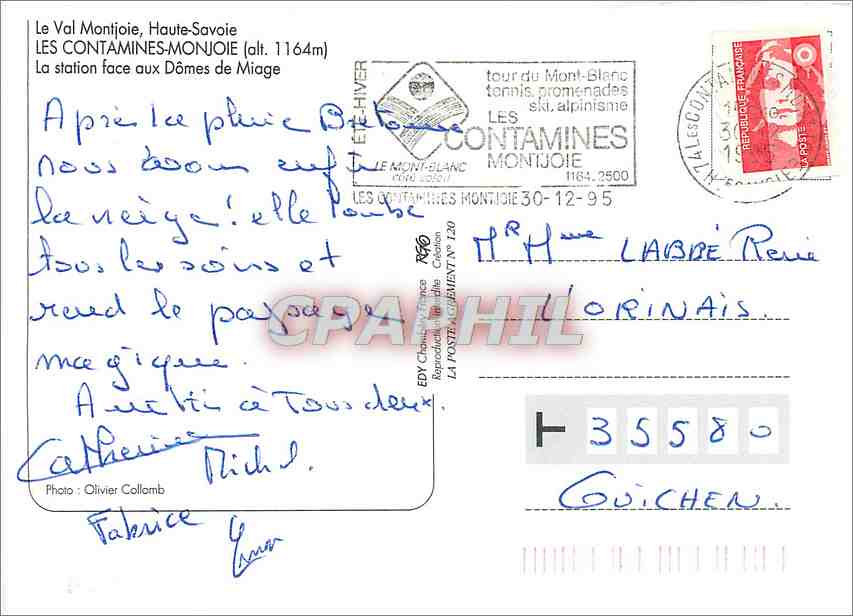 Le Val Montjoie, Haute-Savoie
LES CONTAMINES-MONJOIE (alt. 1164m)
La station face aux Dômes de Miage
Après la pluie Bretonne
nous avons enfin
la neige ! elle tombe
tous les soirs et
rend le paysage
magique.
à Tous deux.
Catherine
Michel.
Photo : Olivier Collomb
Fabrice
ÉTÉ-HIVER
LE MONT-BLANC
côté soleil
tour du Mont-Blanc
tennis, promenades
ski, alpinisme
LES
CONTAMINES
MONTJOIE
1164.2500
LES CONTAMINES MONTJOIE 30-12-95
74 LES CONTA
30
REPUBLIQUE FRANÇAISE
LA POSTE
EDY Chambéry France
Reproduction interdite Création
LA POSTE AGREMENT N° 120
CPAPHIL
Mr Mme LABBÉ René
L'ORINAIS.
T 35580
GUICHEN.